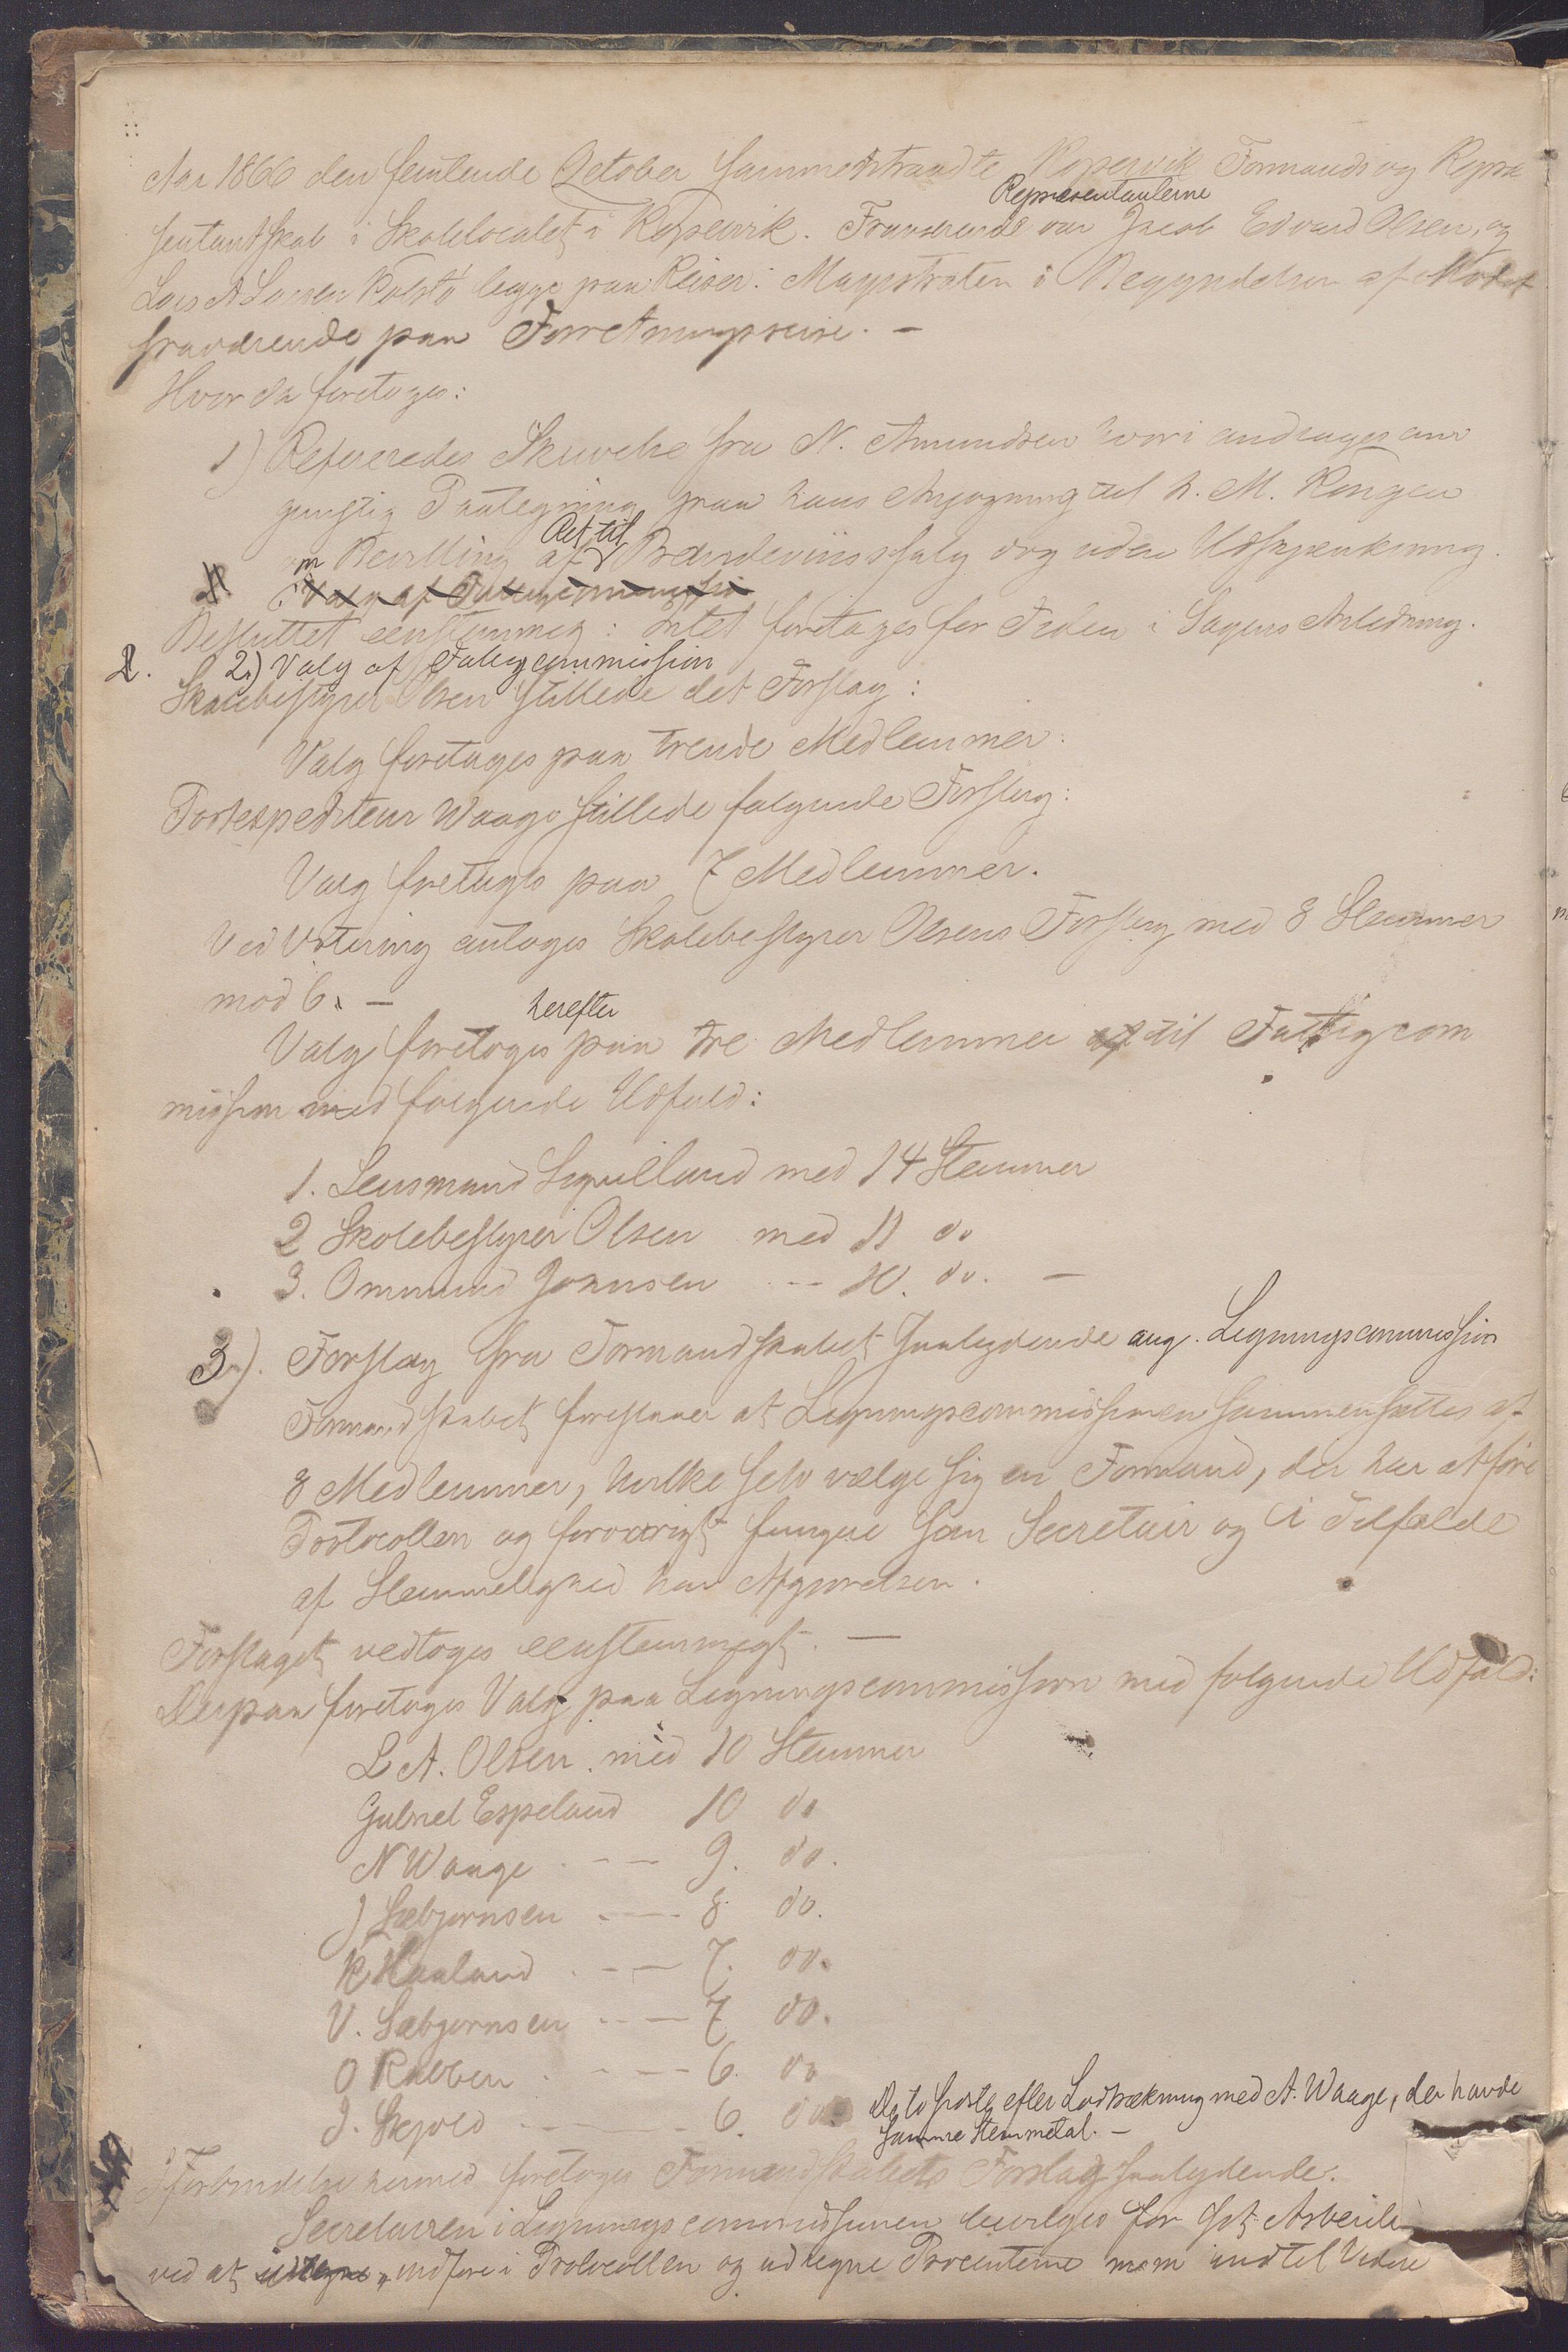 Aar 1866 den femtende October sammentraadte Kopervik Formands og Repræ
Repræsentanterne
sentantskab i Skolelocalet i Kopervik. Fraværende var Jacob Edvard Olsen, og
Lars A Larsen Kolstø begge paa Reiser. Magistraten i Begyndelsen af Mødet
fraværende paa Forretningsreise. –
Hvor da foretoges:
1) Refereredes Skrivelse fra N. Amundsen hvori andrages om
gunstig Paategning paa hans Ansøgning til H. M. Kongen
Ret til
om Bevilling af Brændeviinssalg dog uden Udskjænkning.
Valg af Fattigcommission
Besluttet eenstemmig: Intet foretages for Tiden i Sagens Anledning.
2. 2.) Valg af Fattigcommission
Skolebestyrer Olsen stillede det Forslag:
Valg foretages paa trende Medlemmer.
Postexpediteur Waage stillede følgende Forslag:
Valg foretages paa 7 Medlemmer.
Ved Votering antoges Skolebestyrer Olsens Forslag med 8 Stemmer
mod 6. –
herefter
Valg foretoges paa tre Medlemmer af til Fattigcom
mission med følgende Udfald:
1. Lensmand Sqvilland med 14 Stemmer
2 Skolebestyrer Olsen med 11 do
3. Ommund Johnsen --- 10. do. –
3.). Forslag fra Formandskabet saalydende ang. Ligningscommission
Formandskabet foreslaaer at Ligningscommissionen sammensættes af
8 Medlemmer, hvilke selv vælge sig en Formand, der har at føre
Protocollen og forøvrigt fungere som Secretair og i Tilfælde
af Stemmelighed har Afgjørelsen.
Forslaget vedtoges eenstemmigt. –
Derpaa foretoges Valg paa Ligningscommission med følgende Udfald:
L A. Olsen. med 10 Stemmer
Gabriel Espeland 10 do
N Waage --- 9. do.
J Sæbjørnsen --- 8. do.
K Haaland --- 7. do.
V. Sæbjørnsen --- 7 do.
O Rabben --- 6. do
J. Skjold --- 6. do. De to sidste efter Lodtrækning med A. Waage, der havde
samme Stemmetal. –
I Forbindelse hermed foretoges Formandskabets Forslag saalydende.
Secretairen i Ligningscommissionen bevilges for sit Arbeide
ved at indføre i Protocollen og udregne Procenterne m.m indtil Videre